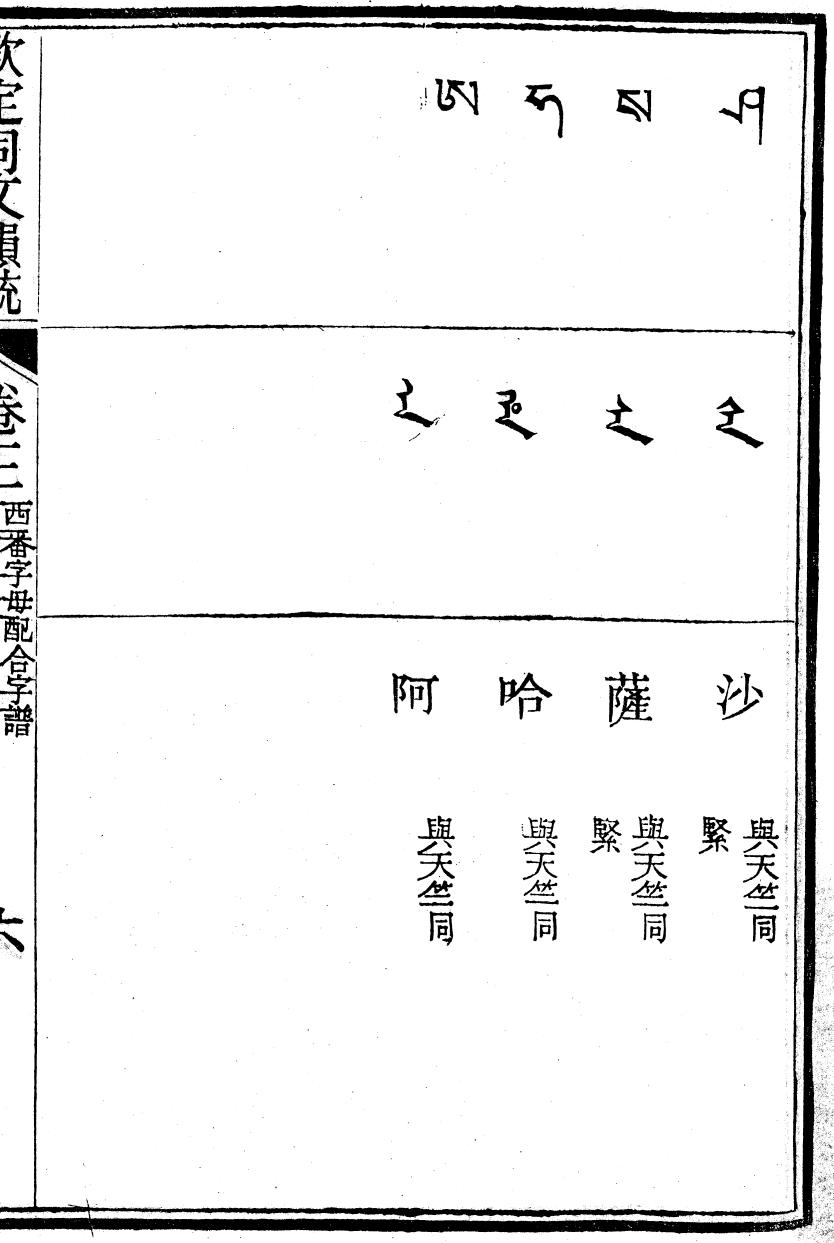 ཤ
ᡧᠠ
沙
與天竺同
緊
ས
ᠰᠠ
薩
與天竺同
緊
ཧ
哈
與天竺同
ཨ
ᠠ
阿
與天竺同
欽定同文韻統
卷三
西番字母配合字譜
六